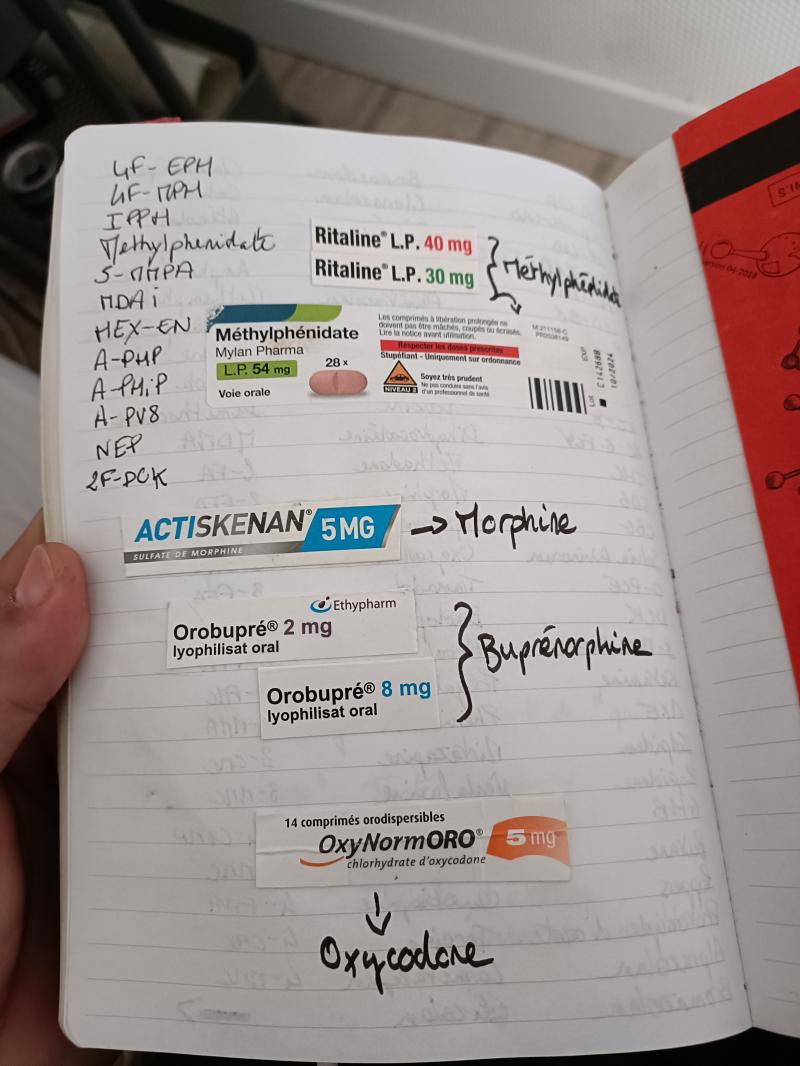 4F-EPH
4F-MPH
IPPH
Methylphenidate
5-MMPA
MDAi
HEX-EN
A-PHP
A-PHiP
A-PV8
NEP
2F-DCK
Ritaline® L.P. 40 mg
Ritaline® L.P. 30 mg
Méthylphénidate
Méthylphénidate
Mylan Pharma
L.P. 54 mg
28 x
Voie orale
Les comprimés à libération prolongée ne
doivent pas être mâchés, coupés ou écrasés.
Lire la notice avant utilisation.
Respecter les doses prescrites
Stupéfiant - Uniquement sur ordonnance
NIVEAU 2
Soyez très prudent
Ne pas conduire sans l'avis
d'un professionnel de santé
EXP 10/2024
Lot C14268B
ACTISKENAN® 5MG
SULFATE DE MORPHINE
→ Morphine
Ethypharm
Orobupré® 2 mg
lyophilisat oral
Orobupré® 8 mg
lyophilisat oral
Buprénorphine
14 comprimés orodispersibles
OxyNormORO® 5 mg
chlorhydrate d'oxycodone
Oxycodone